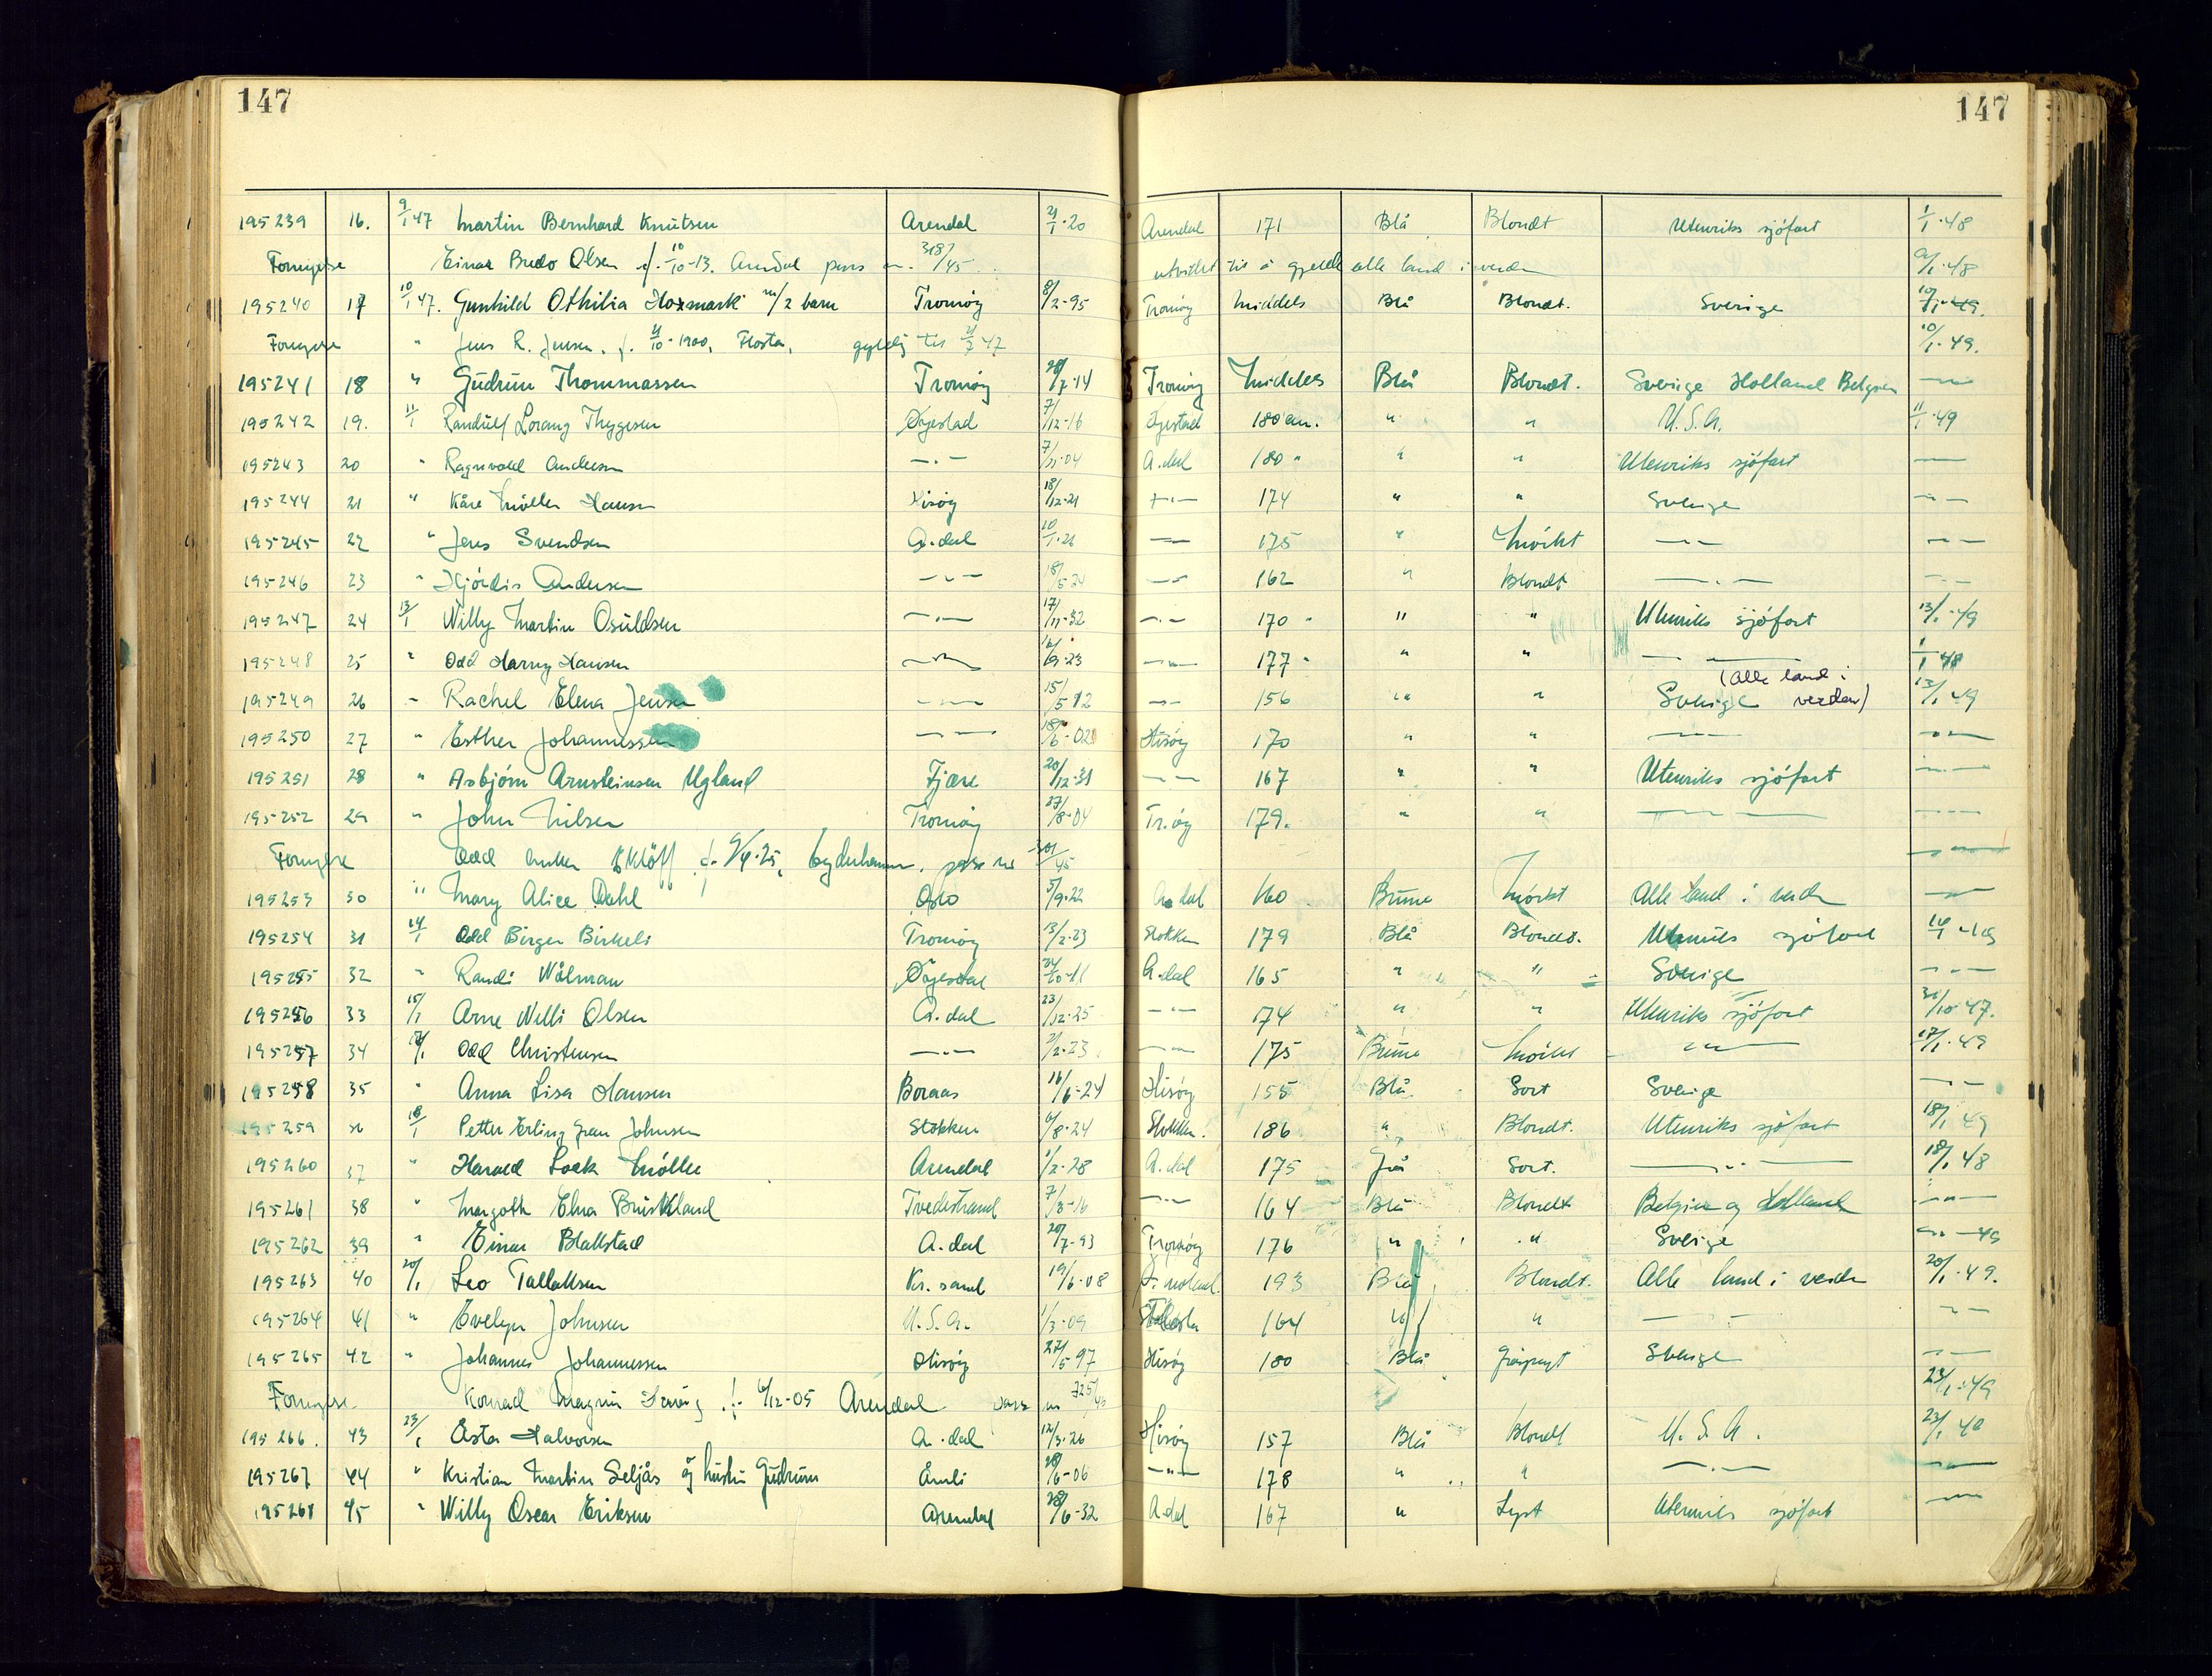 147 147
195239 16. 9/1 47 Martin Bernhard Knutsen Arendal 21/1-20 Arendal 171 Blå Blondt Utenriks sjöfart 1/1-48
Fornyelse Einar Bredo Olsen f. 10/10-13. Arendal pass nr. 318/45 utvidet til å gjelde alle land i verden 9/1-48
195240 17 10/1 47. Gunhild Othilia Hoxmark m/2 barn Tromöy 8/2-95 Tromöy Middels Blå Blondt. Sverige 10/1-49.
Fornyelse " Jens R. Jensen, f. 10-1900, Flosta, gyldig til 47 10/1-49.
195241 18 " Gudrun Thommassen Tromöy 28/7-14 Tromöy Middels Blå Blondt. Sverige Holland Belgien —"—
195242 19. 11/1 Randulf Lorang Thygesen Öyestad 7/12-16 Öyestad 180 cm. " " U.S.A. 11/1-49
195243 20 " Ragnvald Andersen —"— 7/11-04 A.dal 180 " " " Utenriks sjöfart —"—
195244 21 " Kåre Möller Hansen Hisöy 18/12-21 —"— 174 " " Sverige —"—
195245 22 " Jens Svendsen A.dal 10/1-21 —"— 175 " Mörkt —"— —"—
195246 23 " Hjördis Andersen —"— 18/5-24 —"— 162 " Blondt —"— —"—
195247 24 13/1 Willy Martin Osuldsen —"— 17/11-32 —"— 170 " " " Utenriks sjöfart 13/1-49
195248 25 " Odd Harry Hansen —"— 9-23 —"— 177 " " " —"— 1/1 48
195249 26 " Rachel Elena Jensen —"— 15/5 12 —"— 156 " " Sverige (Alle land i verden) 13/1 49
195250 27 " Esther Johannessen —"— 18/6-02 Hisöy 170 " " —"— —"—
195251 28 " Asbjörn Arnsteinsen Ugland Fjære 20/12-31 —"— 167 " " Utenriks sjöfart —"—
195252 29 " John Nilsen Tromöy 27/8-04 Tr.öy 179. " " —"— —"—
Fornyelse Odd Eklöff f. 9/4-25, Lyderhamn, pass nr 45 —"—
195253 30 " Mary Alice Dahl Oslo 5/9-22 A.dal 160 Brune Mörkt Alle land i verden —"—
195254 31 14/1 Odd Birger Birkeli Tromöy 13/2-23 Stokken 179 Blå Blondt. Utenriks sjöfart 14/1-49
195255 32 " Randi Wålman Öyestad 24/10-11 A.dal 165 " " Sverige —"—
195256 33 15/1 Arne Willi Olsen A.dal 23/12-25 —"— 174 " " Utenriks sjöfart 31/10-47.
195257 34 17/1 Odd Christensen —"— 2/2-23 —"— 175 Brune Mörkt —"— 17/1-49
195258 35 " Anna Lisa Hansen Boraas 16/6-24 Hisöy 155 Blå Sort Sverige —"—
195259 36 18/1 Petter Erling Gran Johnsen Stokken 8-24 Stokken. 186 " Blondt. Utenriks sjöfart 18/1 49
195260 37 " Harald Lock Möller Arendal 1/2-28 A.dal 175 Grå Sort. —"— 18/1 48
195261 38 " Margoth Elna Bruskland Tvedestrand 7/3-16 —"— 164 Blå Blondt Belgien og Holland —"—
195262 39 " Einar Blakstad A.dal 20/7-93 Tromöy 176 " " Sverige —"—49
195263 40 20/1 Leo Tallaksen Kr. sand 19/6-08 193 Blå Blondt. Alle land i verden 20/1-49.
195264 41 " Evelyn Johnsen U.S.A. 1/3-09 Flosta 164 " " —"— —"—
195265 42 " Johannes Johannessen Hisöy 27/5 97 Hisöy 180 Blå Gråsprengt Sverige —"—
Fornyelse Konrad Magnus f. 6/12-05 Arendal pass nr 725/45 23/1-49
195266. 43 23/1 Åsta Halvorsen A.dal 12/3-26 Hisöy 157 Blå Blondt U.S.A. 23/1 49
195267 44 " Kristian Martin Seljås og hustru Gudrun Åmli 28/6-06 —"— 178 " " —"— —"—
195268 45 " Willy Oscar Eriksen Arendal 28/6-32 A.dal 167 " Lyst Utenriks sjöfart —"—